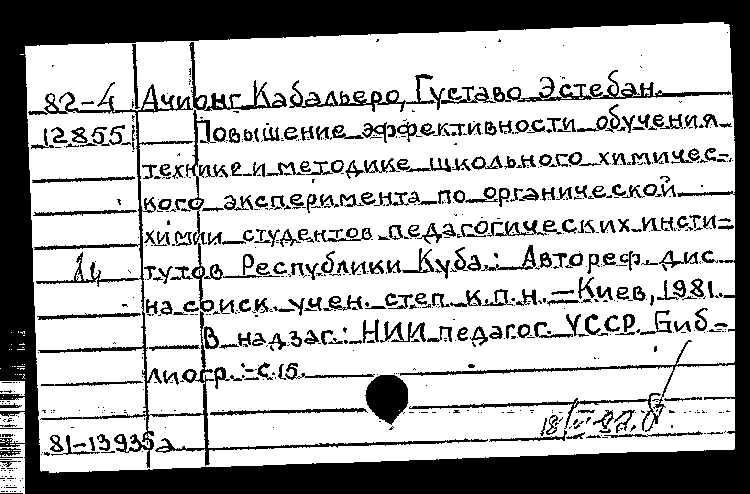 82-4 Ачионг Кабальеро, Густаво Эстебан.
12855 Повышение эффективности обучения
технике и методике школьного химичес-
кого эксперимента по органической
химии студентов педагогических инсти-
тутов Республики Куба.: Автореф. дис
на соиск. учен. степ. к.п.н. — Киев, 1981.
В надзаг.: НИИ педагог. УССР. Биб-
лиогр.: с. 15.
81-13935а